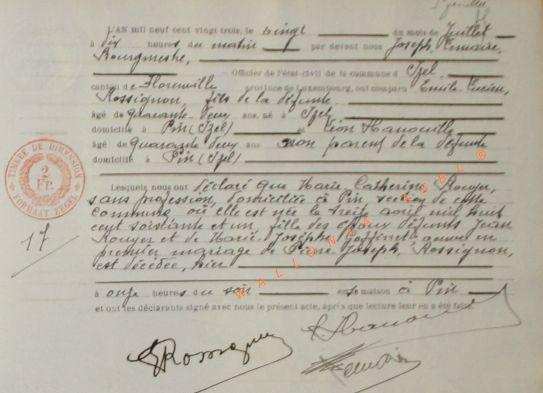 L'AN mil neuf cent vingt trois, le vingt du mois de Juillet
à dix heures du matin par devant nous Joseph,
Bourgmestre,
Officier de l'état-civil de la commune d' Izel
canton de Florenville province de Luxembourg, ont comparu Emile
Rossignon, fils de la défunte
âgé de quarante deux ans, né à Izel
domicilié à Pin (Izel) et Léon
âgé de quarante deux ans non parent de la défunte
domicilié à Pin (Izel)
Lesquels nous ont déclaré que Marie, Catherine Rouyer,
sans profession, domiciliée à Pin section de cette
commune où elle est née le treize avril mil huit
cent soixante et un, fille des époux défunts Jean
Rouyer et de Marie Josèphe veuve en
premier mariage de Pierre Joseph, Rossignon,
est décédée, hier
à onze heures du soir en sa maison à Pin
et ont les déclarants signé avec nous le présent acte, après que lecture leur en a été faite.
TIMBRE DE DIMENSION
2 FR.
FORMAAT ZEGEL
17
WALLONICA
E Rossignon